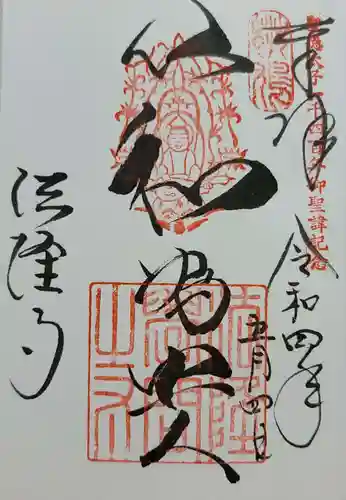 奉拝
聖徳太子一千四百年御聖諱記念
令和四年
五月四日
以和為貴
法隆寺